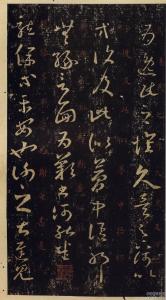 為逸民之懷久矣足下何以
方復及此似夢中語耶
無緣言面為歎書何能悉
龍保等平安也謝之甚遲見